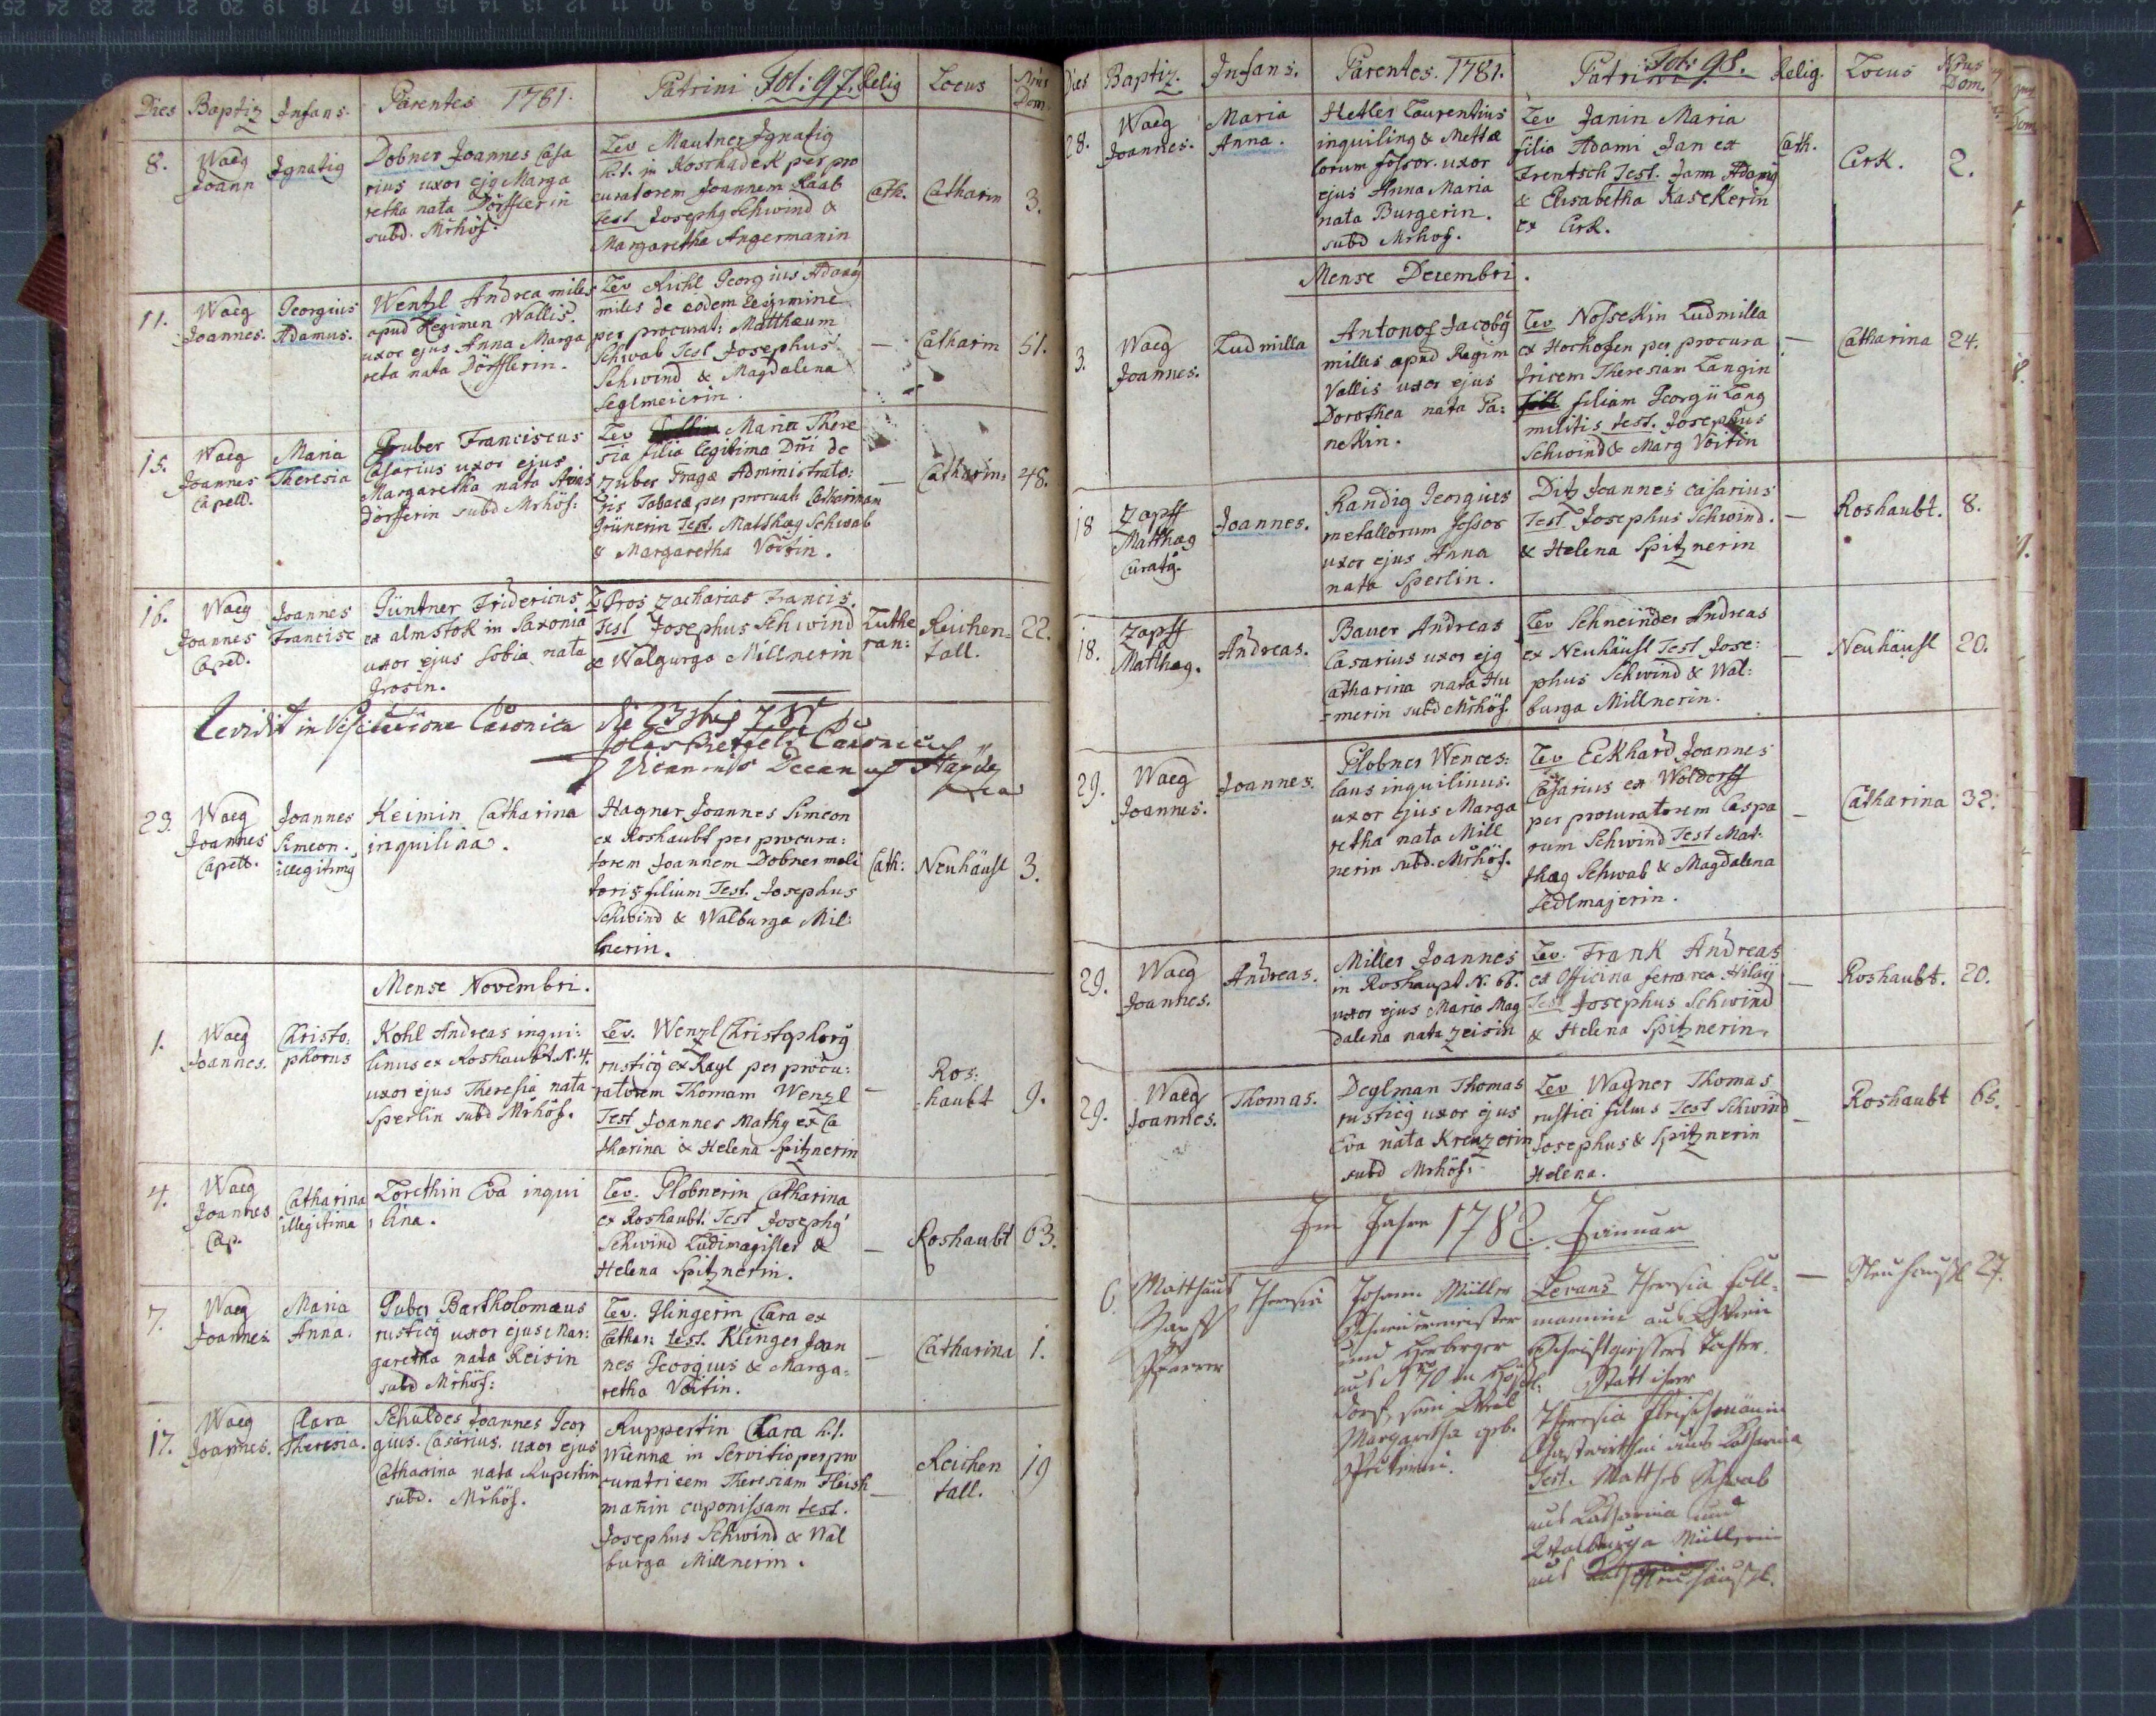 Dies Baptiz Infans. Parentes 1781. Patrini Fol: 97. Relig Locus Nrus Dom.
8. Waeg Joann
Ignatig
Dobner Joannes Casa
rius uxor ejg Marga
retha nata Dörfflerin
subd. Mrhöf:
Lev Mautner Ignatig
h.t. in Roschadek per pro
curatorem Joannem Raab
Test Josephg Schwind &
Margaretha Angermanin
Cath. Catharin 3.
11. Waeg
Joannes.
Georgius
Adamus.
Wentzl Andrea miles
apud Regimen Wallis.
uxor ejus Anna Marga
reta nata Dörfflerin.
Lev Richl Georgius Adamg
miles de eodem Regimine
per procurat: Matthæum
Schwab Test Josephus
Schwind & Magdalena
Seglmeierin.
— Catharin 51.
15. Waeg
Joannes
Capell.
Maria
Theresia
Gruber Franciscus
Casarius uxor ejus
Margaretha nata
dörfferin subd Mrhöf:
Lev Maria There
sia filia legitima Dñi de
Zuber Fragæ Administrato:
ris Tabacæ per procurat: Catharinam
Grünerin Test. Matthæg Schwab
& Margaretha Voitin.
— Catharin: 48.
16. Waeg
Joannes
Capel.
Joannes
Francisc
Güntner Fridericus
ex almstok in Saxonia
uxor ejus Sobia nata
Grosin.
L Pros Zacharias Francis.
Test Josephus Schwind
& Walgurga Millnerin
Luthe
ran:
Reichen-
tall.
22.
Revidit in Visitatione Canonica die 23
Canonicus
Decanus
23. Waeg
Joannes
Capell.
Joannes
Simeon.
illegitimg
Keimin Catharina
inquilina.
Hagner Joannes Simeon
ex Roshaubt per procura:
torem Joannem Dobner moli
toris filium Test. Josephus
Schwind & Walburga Mil:
lnerin.
Cath: Neuhäusl 3.
Mense Novembri.
1. Waeg
Joannes.
Christo:
phorus
Kohl Andreas inqui:
linus ex Roshaubt. N. 4.
uxor ejus Theresia nata
Sperlin subd Mrhöf.
Lev. Wenzl Christophorg
rusticg ex Rayl per procu:
ratorem Thomam Wenzl
Test Joannes Mathg ex Ca
tharina & Helena Spitznerin
— Ros:
haubt
9.
4. Waeg
Joannes
Cap.
Catharina
illegitima
Lorethin Eva inqui
lina.
Lev. Plobnerin Catharina
ex Roshaubt. Test Josephg
Schwind Ludimagister &
Helena Spitznerin.
— Roshaubt 63.
7. Waeg
Joannes
Maria
Anna.
Puber Bartholomæus
rusticg uxor ejus Mar:
garetha nata Reisin
subd Mrhöf:
Lev. Glingerin Clara ex
Cathar: test. Klinger Joan
nes Georgius & Marga-
retha Voitin.
— Catharina 1.
17. Waeg
Joannes.
Clara
Theresia.
Schuldes Joannes Geor
gius. Casarius. uxor ejus
Catharina nata Rupertin
subd. Mrhöf.
Ruppertin Clara h.t.
Viennæ in Servitio per pro
curatricem Theresiam Fleisch
mañin cuponissam test.
Josephus Schwind & Wal
burga Millnerin.
— Reichen
tall.
19
Dies Baptiz. Infans. Parentes. 1781. Patrini Fol: 98. Relig. Locus Nrus Dom.
28. Waeg
Joannes.
Maria
Anna.
Hetler Laurentius
inquiling & Mettal
lorum fossor. uxor
ejus Anna Maria
nata Burgerin.
subd Mrhof.
Lev Janin Maria
filia Adami Jan ex
Trentsch Test. Jann Adamg
& Elisabetha Kasekerin
ex Cirk.
Cath. Cirk. 2.
Mense Decembri.
3. Waeg
Joannes.
Ludmilla
Antonof Jacobg
milles apud Regim
Vallis uxor ejus
Dorothea nata Pa:
nekin.
Lev Nossekin Ludmilla
ex Horhofen per procura
tricem Theresiam Langin
filiam Georgii Lang
militis test. Josephus
Schwind & Marg Voitin
— Catharina 24.
18 Zapff
Matthæg
Curatg.
Joannes.
Randig Georgius
metallorum fossor
uxor ejus Anna
nata Sperlin.
Ditz Joannes casarius
Test. Josephus Schwind.
& Helena Spitznerin
— Roshaubt. 8.
18. Zapff
Matthæg.
Andreas.
Bauer Andreas
Casarius uxor ejg
Catharina nata Hu
merin subd Mrhöf
Lev Schneinder Andreas
ex Neuhäusl Test Jose:
phus Schwind & Wal:
burga Millnerin.
— Neuhäusl 20.
29. Waeg
Joannes.
Joannes.
Plobner Wences:
laus inquilinus.
uxor ejus Marga
retha nata Mill
nerin subd. Mrhöf.
Lev Eckhard Joannes
Casarius ex Woldorff
per procuratorem Caspa
rum Schwind Test Mat:
thæg Schwab & Magdalena
Sedlmajerin.
— Catharina 32.
29. Waeg
Joannes.
Andreas.
Miller Joannes
in Roshaupt N. 66.
uxor ejus Maria Mag
dalena nata Zeisin
Lev. Frank Andreas
ex Officina ferrarea
Test Josephus Schwind
& Helena Spitznerin.
— Roshaubt. 20.
29. Waeg
Joannes.
Thomas.
Deglman Thomas
rusticg uxor ejus
Eva nata Kreuzerin
subd Mrhöf:
Lev Wagner Thomas
rustici filius Test Schwind
Josephus & Spitznerin
Helena.
— Roshaubt 65.
Im Jahre 1782. Januar
6. Matthäus
Zapff
Pfarrer
Theresia
Johann Müller
Schneidermeister
und Herberger
aus Nro 70 in
dorf, sein Weib
Margaretha geb.
Levans Theresia
aus Wien
Schriftgiessers Tochter.
Statt ihrer
Theresia Fleischmänin
Gastwirthin aus Katharina
Test. Mathes Schwab
aus Katharina und
Walburga Müllnerin
aus Neuhäusl.
— Neuhäusl 27.